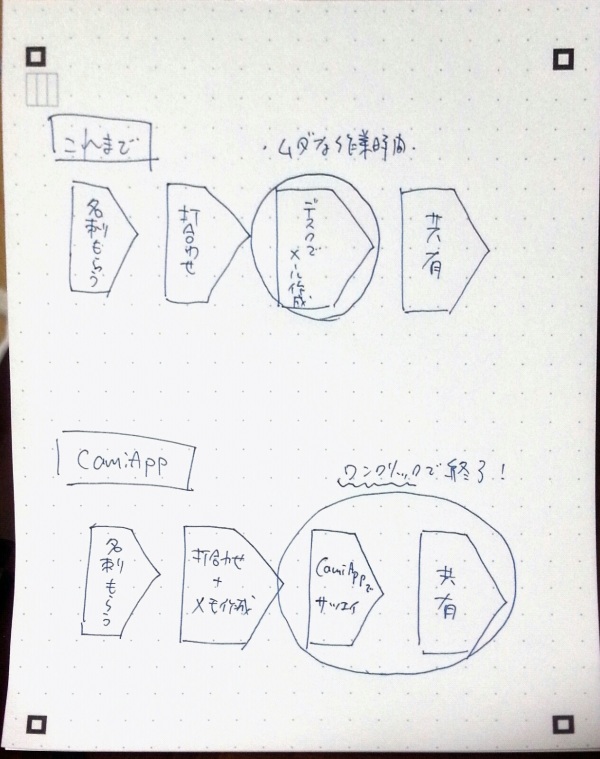 これまで
・ムダな作業時間.
名刺もらう
打合わせ
デスクで
メール作成
共有
CamiApp
ワンクリックで終了！
名刺もらう
打合わせ
+
メモ作成
CamiAppで
サツエイ
共有